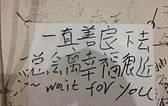 一直善良下去
总会离幸福很近
~ wait for you